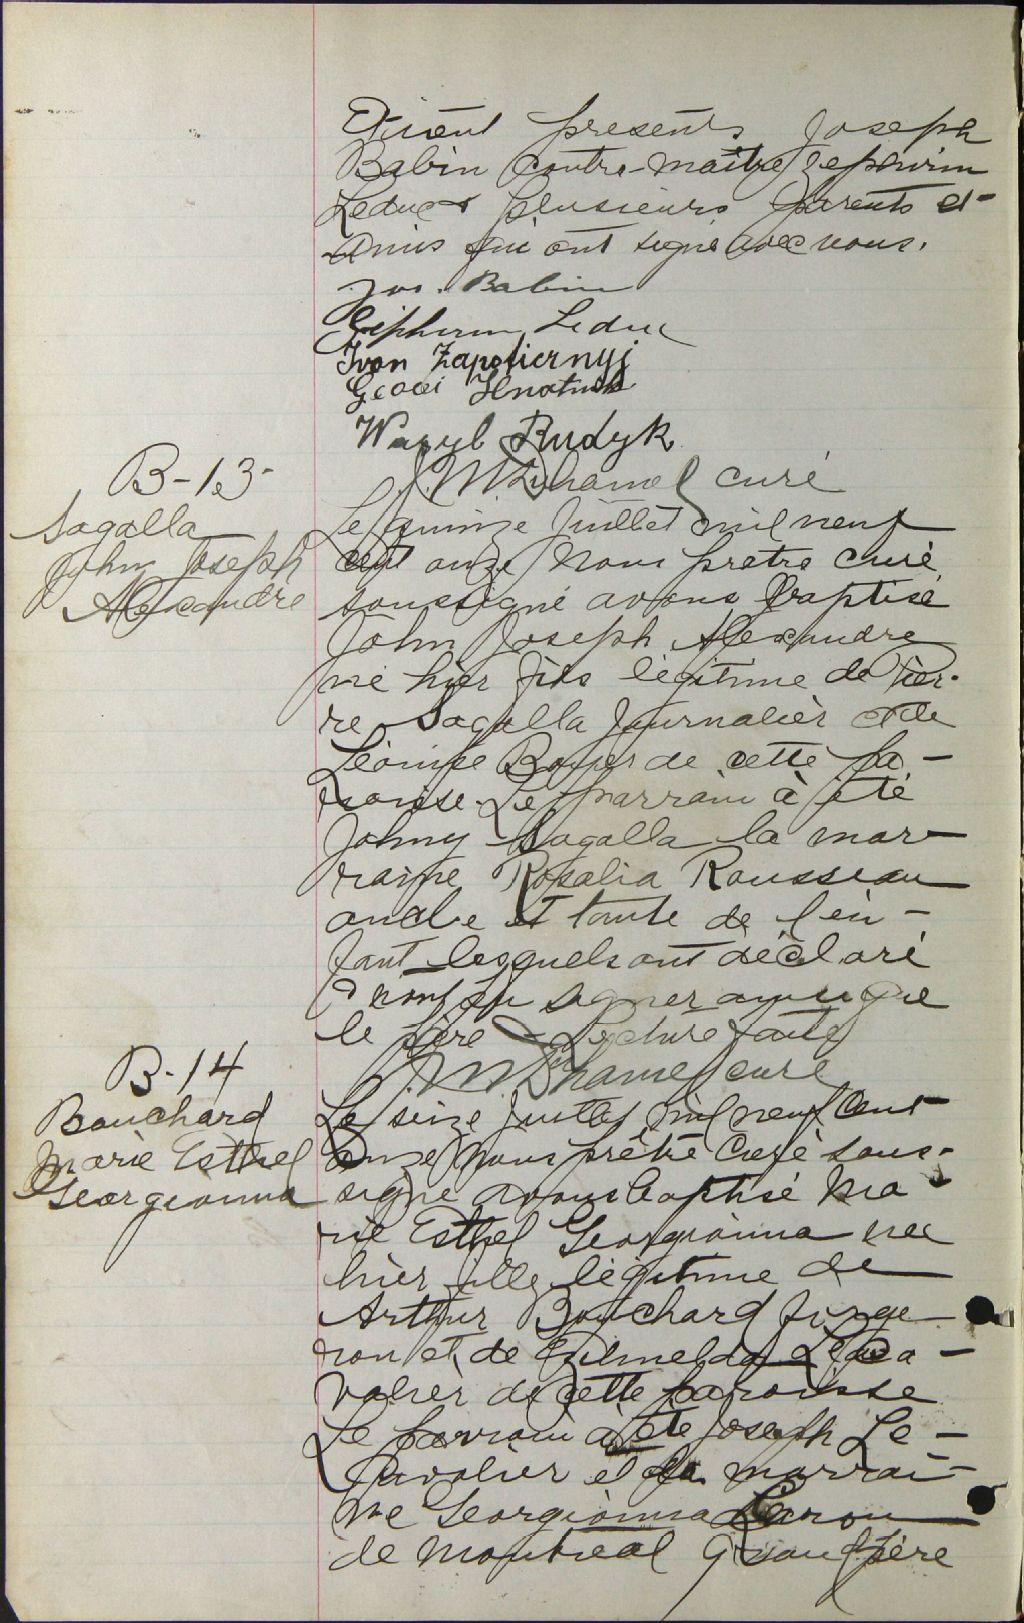 Etaient présents Joseph
Babin contre-maître Zepherin
Leduc & plusieurs parents et
amis qui ont signé avec nous.
Jos. Babin
Zepherin Leduc
Ivan Zapotiernyj
Wasyl Rudyk
J. M. Duhamel curé
B-13
Sagalla
John Joseph
Alexandre
Le quinze Juillet mil neuf
cent onze Nous prêtre curé
soussigné avons baptisé
John Joseph Alexandre
né hier fils légitime de Pier-
re Sagalla Journalier et de
Léonise Boyer de cette pa-
roisse. Le parrain à été
Johny Sagalla la mar-
raine Rosalia Rousseau
oncle et tante de l'en-
fant lesquels ont déclaré
ne savoir signer ainsi que
le père. Lecture faite
J. M. Duhamel curé
B-14
Bouchard
Marie Esthel
Georgianna
Le seize Juillet mil neuf cent
onze Nous prêtre Curé sous-
signé avons baptisé Ma-
rie Esthel Georgianna née
hier fille légitime de
Arthur Bouchard forge-
ron et de Leca-
valier de cette paroisse
Le parrain a été Joseph Le-
cavalier et la marrai-
ne Georgianna Caron
de Montreal Grand père